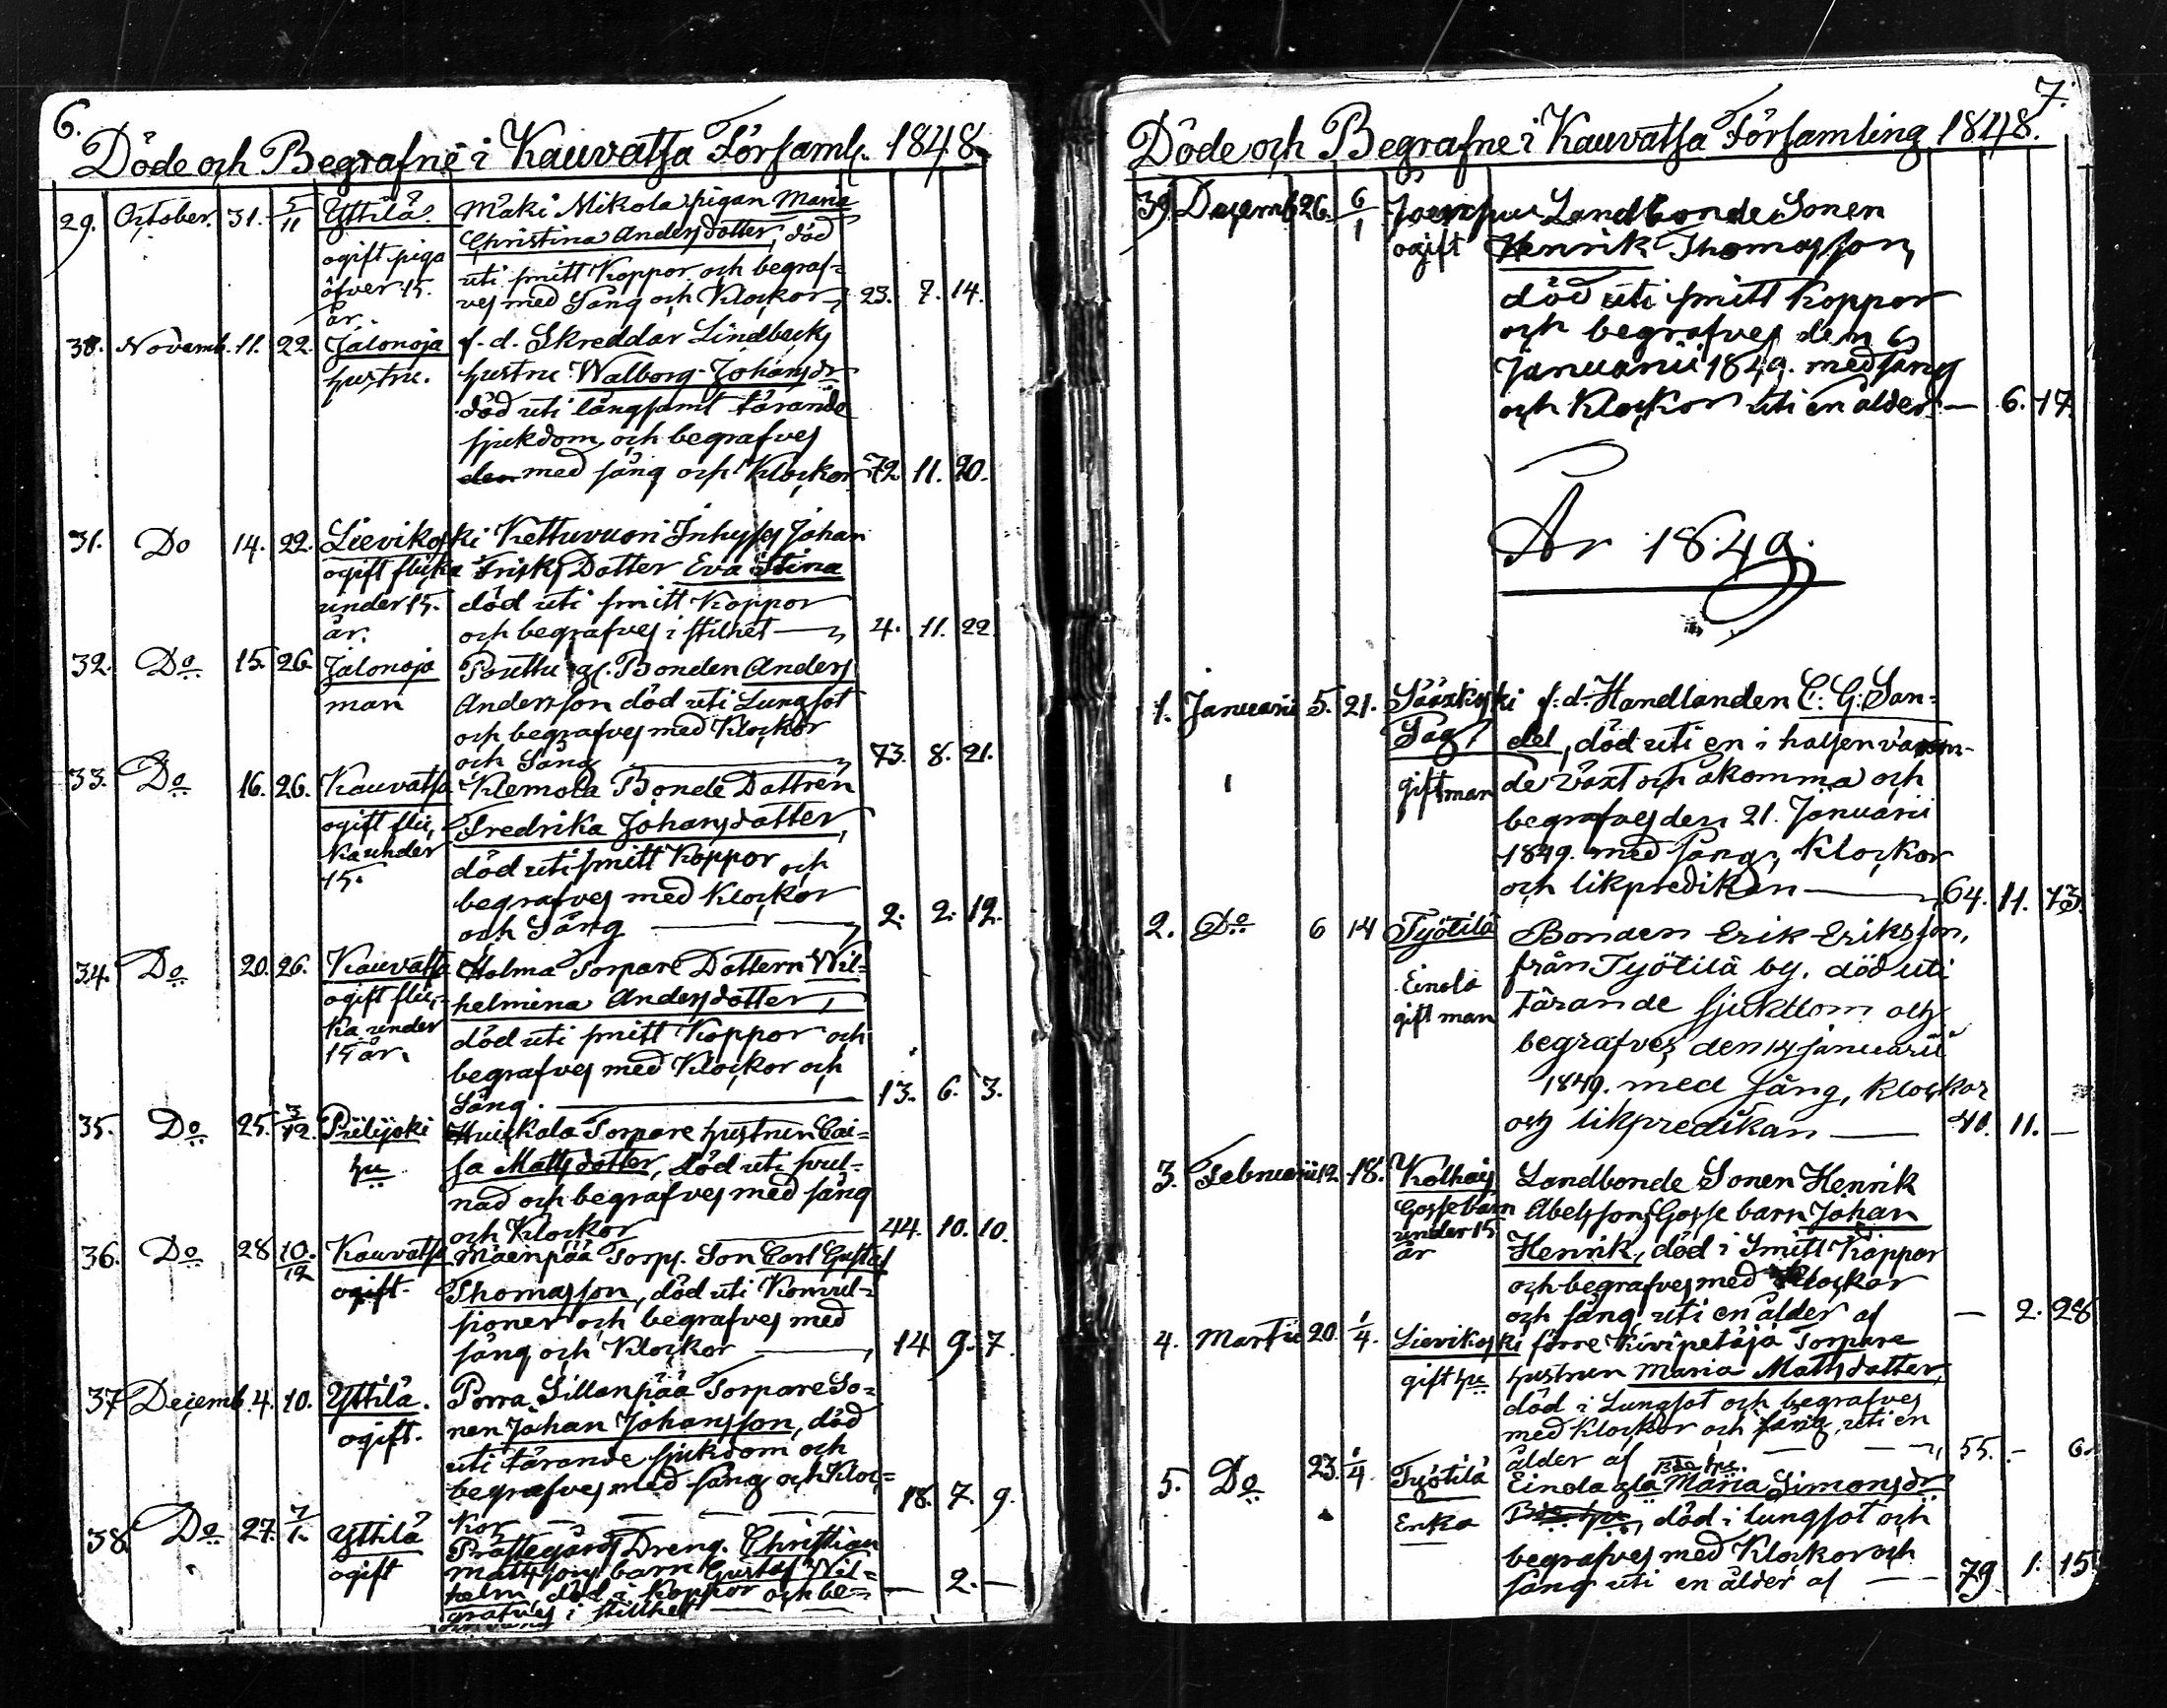 6.
Döde och Begrafne i Kauvatsa Församl. 1848.
29. October. 31. 5/11 Yttilä. Mäki Mikola pigan Maria
ogift piga Christina Andersdotter, död
öfver 15. uti smitt Koppor och begraf-
år. ves med Sång och Klockor, 23. 7. 14.
30. Novemb. 11. 22. Jalonoja f. d. Skreddar Lindbecks
hustru. hustru Walborg Johansdr
död uti långsamt tärande
sjukdom och begrafves
den med sång och Klockor 72 11. 20.
31. Do 14. 22. Lievikoski Kettuvuori Inhyses Johan
ogift flicka Frisks Dotter Eva Stina
under 15. död uti smitt Koppor
år. och begrafves i stilhet — 4. 11. 22.
32. Do 15. 26. Jalonoja Paettu gl. Bonden Anders
man Andersson död uti Lungsot
och begrafves med Klockor
och Sång — 73. 8. 21.
33. Do 16. 26. Kauvatsa Klemola Bonde Dottren
ogift flic- Fredrika Johansdotter,
ka under död uti smitt Koppor och
15. begrafves med Klockor
och Sång — 2. 2. 12.
34. Do 20. 26. Kauvatsa Holma Torpare Dottern Wil-
ogift flic- helmina Andersdotter,
ka under död uti smitt Koppor och
15 år. begrafves med Klockor och
Sång. — 13. 6. 3.
35. Do 25. 3/12. Piilijoki Huikola Torpare hustrun Cai-
hu sa Mattsdotter, död uti svul-
nad och begrafves med sång
och Klockor — 44. 10. 10.
36. Do 28 10./12 Kauvatsa Mäenpää Torp. Son Carl Gustaf
ogift. Thomasson, död uti Konvul-
sioner och begrafves med
sång och Klockor — 14 9. 7.
37 Decemb. 4. 10. Yttilä. Porra Sillanpää Torpare So-
ogift. nen Johan Johansson, död
uti tärande sjukdom och
begrafves med sång och Kloc-
kor — — — 18. 7. 9.
38. Do 27. 7/1. Yttilä Prästegårds Dreng. Christian
ogift Mattssons barn Gustaf Wil-
helm, död i Koppor och be- — 2. —
grafves i stillhet
7.
Döde och Begrafne i Kauvatsa Församling 1848.
39. Dezemb. 26. 6/1 Landbonde Sonen
ogift Henrik Thomasson,
död uti smitt Koppor
och begrafves den 6
Januarii 1849. med sång
och Klockor uti en ålder — 6. 17.
År 1849.
1. Januarii 5. 21. Sääxkoski f. d. Handlanden C. G. San-
Såg del, död uti en i halsen varan-
giftman de växt och åkomma och
begrafves den 21. Januarii
1849. med sång, Klockor
och likpredikan — 64. 11. 13.
2. Do 6 14 Työtilä Bonden Erik Eriksson,
Einola från Työtilä by, död uti
gift man tärande sjukdom och
begrafves den 14 januarii
1849. med sång, klockor
och likpredikan — 41. 11. —
3. Februarii 12. 18. Kolhois Landbonde Sonen Henrik
Gossebarn Abelssons Gosse barn Johan
under 15 Henrik, död i Smitt Koppor
år och begrafves med Klockor
och sång uti en ålder af — 2. 28
4. Martii 20. 1/4. Lievikoski förre Kivipetäjä Torpare
gift hu hustrun Maria Mattsdotter,
död i Lungsot och begrafves
med Klockor och sång uti en
ålder af — — 55. — 6.
5. Do 23. 1/4. Työtilä Einola gla Bde hu. Maria Simonsdr
Enka Bde hu, död i lungsot och
begrafves med Klockor och
sång uti en ålder af — — 79 1. 15